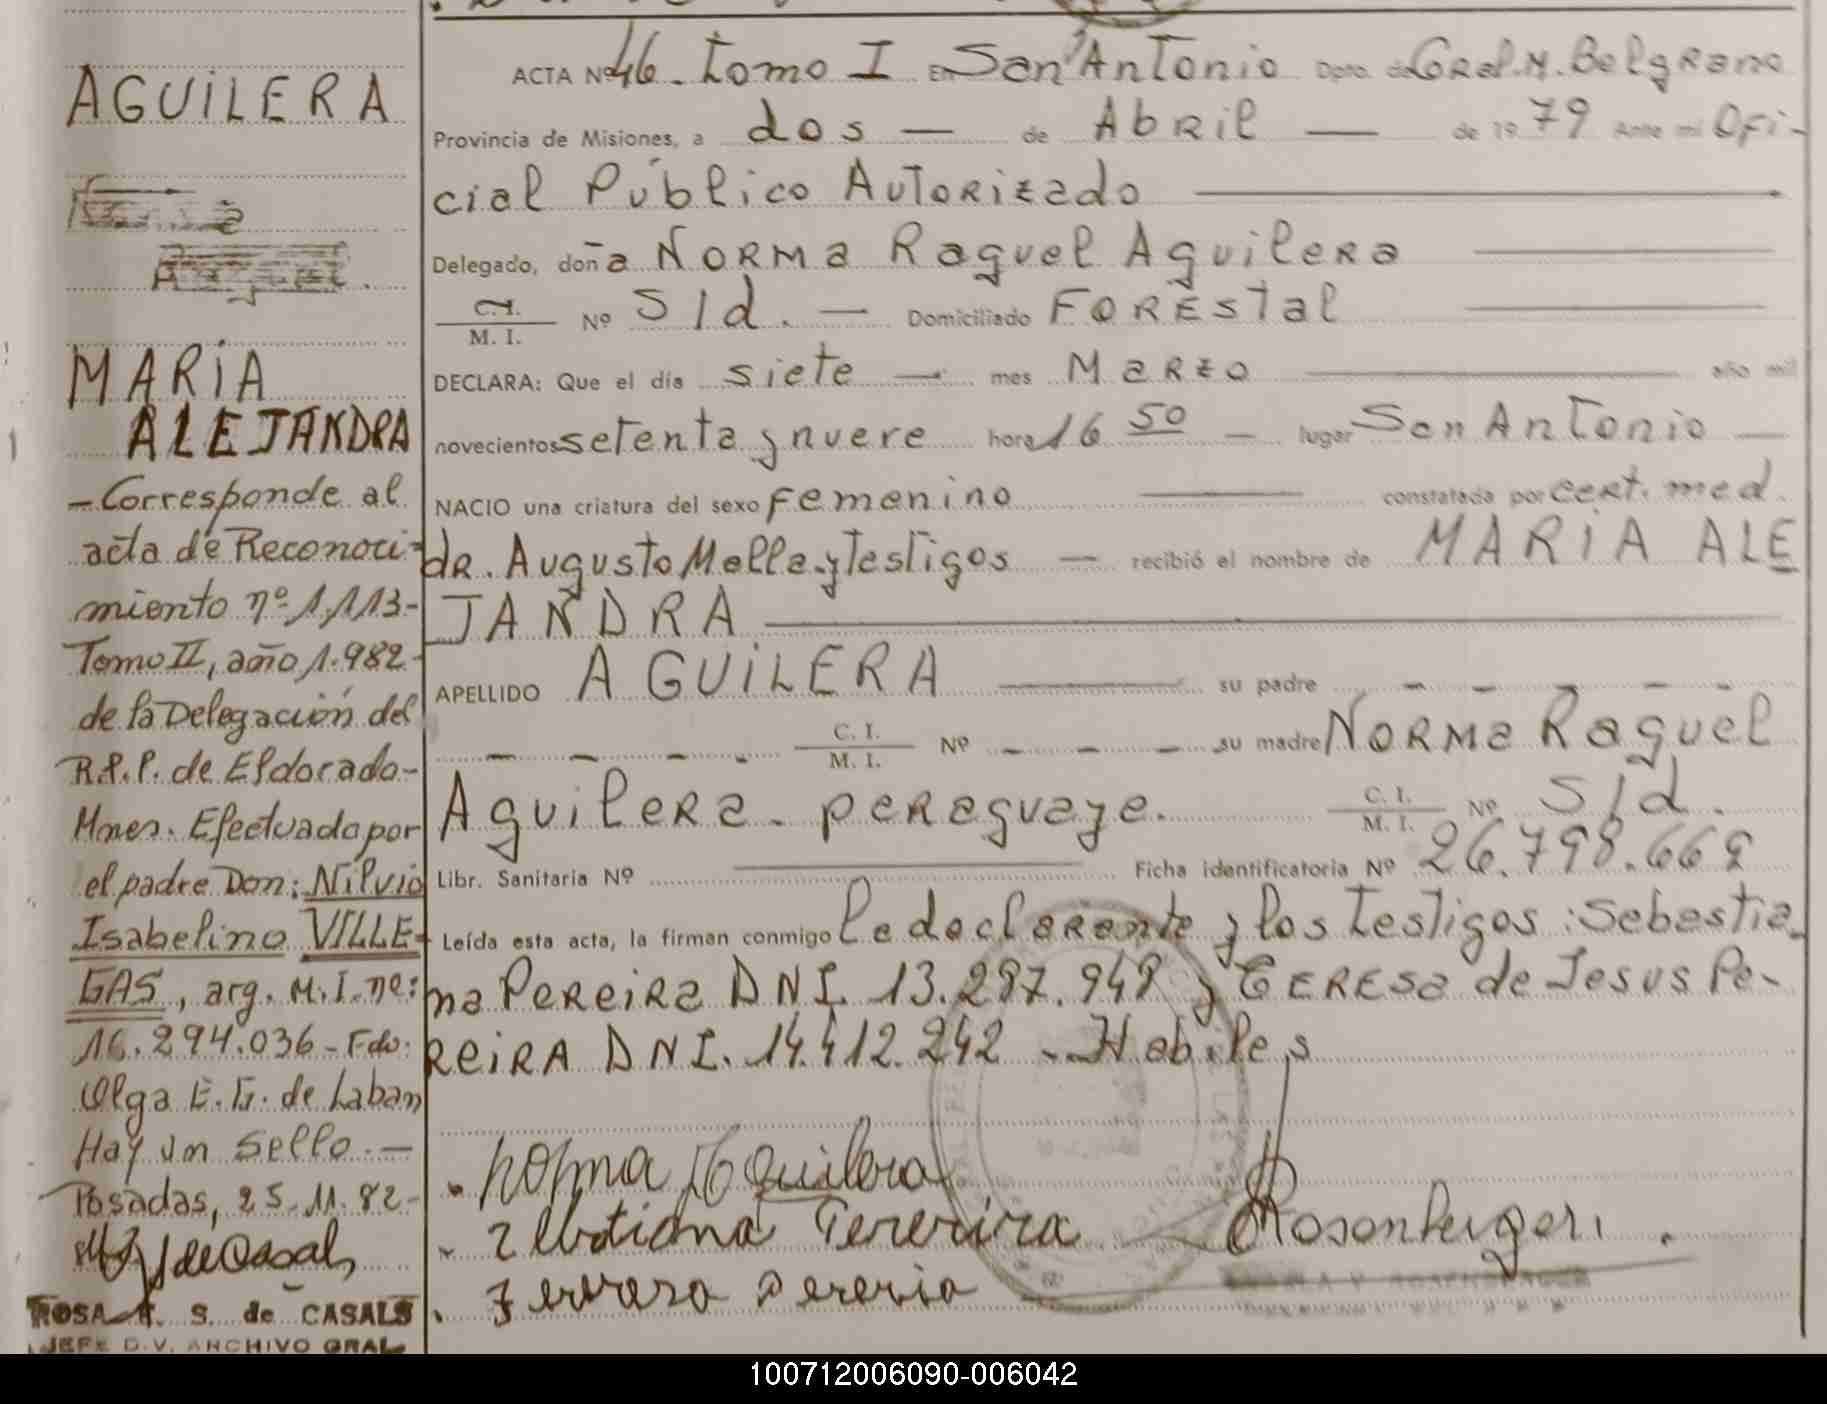 AGUILERA
MARIA
ALEJANDRA
- Corresponde al
acta de Reconoci-
miento nº 1,113-
Tomo II, año 1.982-
de la Delegación del
R.P.P. de Eldorado-
Mnes. Efectuado por
el padre Don: Nilvio
Isabelino VILLE-
GAS, arg. M.I.nº:
16.294.036 - Fdo:
Olga E. G. de Laban
Hay un Sello. —
Posadas, 25-11-82-
ROSA S. de CASALS
JEFE D.V. ARCHIVO GRAL
ACTA Nº 46. Tomo I En San Antonio Dpto. de Gral. M. Belgrano
Provincia de Misiones, a dos — de Abril — de 1979 Ante mi Ofi-
cial Público Autorizado
Delegado, doña Norma Raquel Aguilera
C.I. M. I. Nº S/d. — Domiciliado Forestal
DECLARA: Que el día siete — mes Marzo año mil
novecientos setenta y nueve hora 16 50 — lugar San Antonio —
NACIO una criatura del sexo Femenino constatada por cert. med.
dr. Augusto Molla y Testigos — recibió el nombre de MARIA ALE
JANDRA
APELLIDO AGUILERA su padre - - - - -
- - - - C. I. M. I. Nº - - - - su madre Norma Raquel
Aguilera - paraguaya. C. I. M. I. Nº S/d.
Libr. Sanitaria Nº Ficha identificatoria Nº 26.798.669
Leída esta acta, la firman conmigo la declarante y los testigos: Sebastia-
na Pereira DNI. 13.297.948 y Teresa de Jesus Pe-
reira DNI. 14.412.242 - Habiles
Norma R Aguilera
Pereira
Rosenberger
100712006090-006042